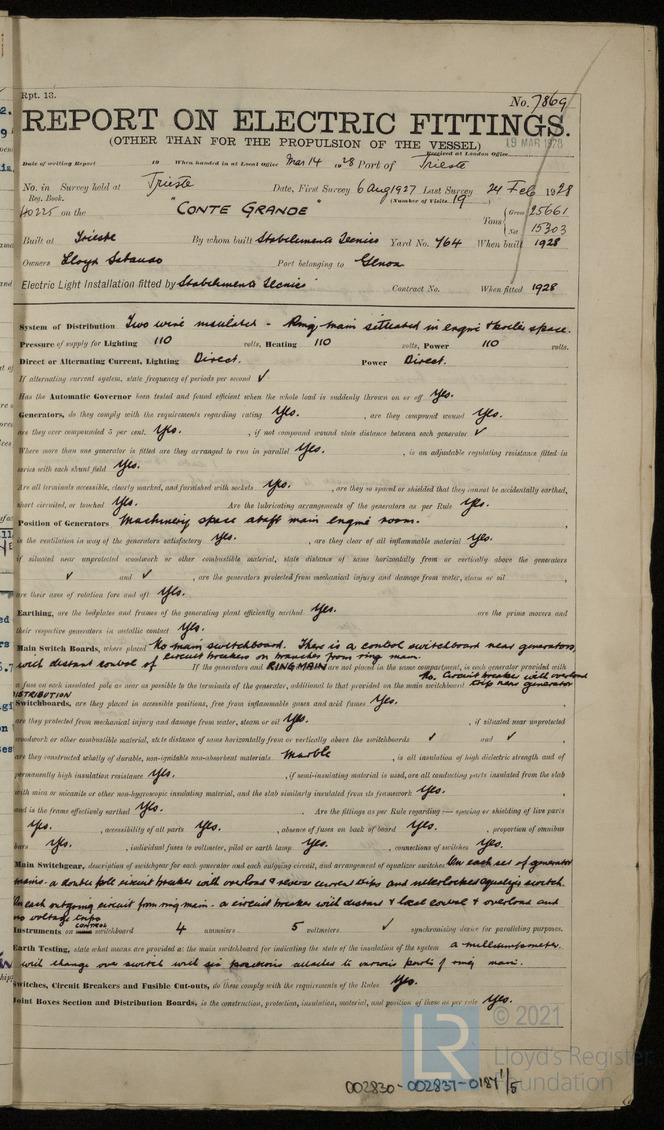 Rpt. 13.
No. 7869
REPORT ON ELECTRIC FITTINGS.
(OTHER THAN FOR THE PROPULSION OF THE VESSEL)
19 MAR 1928
Received at London Office
Date of writing Report 19 When handed in at Local Office Mar 14 1928 Port of Trieste
No. in Survey held at Trieste Date, First Survey 6 Aug 1927 Last Survey 24 Feb 1928
Reg. Book. (Number of Visits 19)
40225 on the "CONTE GRANDE" Tons { Gross 25661
Net 15303
Built at Trieste By whom built Stabilimento Tecnico Yard No. 764 When built 1928
Owners Lloyd Sabaudo Port belonging to Genoa
Electric Light Installation fitted by Stabilimento Tecnico Contract No. When fitted 1928
System of Distribution Two wire insulated - Ring main situated in engine & boiler space.
Pressure of supply for Lighting 110 volts, Heating 110 volts, Power 110 volts.
Direct or Alternating Current, Lighting Direct. Power Direct.
If alternating current system, state frequency of periods per second ✓
Has the Automatic Governor been tested and found efficient when the whole load is suddenly thrown on or off Yes.
Generators, do they comply with the requirements regarding rating Yes. , are they compound wound Yes.
are they over compounded 5 per cent. Yes. , if not compound wound state distance between each generator ✓
Where more than one generator is fitted are they arranged to run in parallel Yes. , is an adjustable regulating resistance fitted in
series with each shunt field Yes.
Are all terminals accessible, clearly marked, and furnished with sockets Yes. , are they so spaced or shielded that they cannot be accidentally earthed,
short circuited, or touched Yes. Are the lubricating arrangements of the generators as per Rule Yes.
Position of Generators Machinery space abaft main engine room.
is the ventilation in way of the generators satisfactory Yes. , are they clear of all inflammable material Yes.
if situated near unprotected woodwork or other combustible material, state distance of same horizontally from or vertically above the generators
✓ and ✓ , are the generators protected from mechanical injury and damage from water, steam or oil ,
are their axes of rotation fore and aft Yes.
Earthing, are the bedplates and frames of the generating plant efficiently earthed Yes. are the prime movers and
their respective generators in metallic contact Yes.
Main Switch Boards, where placed No main switchboard. There is a control switchboard near generators,
with distant control of circuit breakers on branches from ring main.
If the generators and RING MAIN are not placed in the same compartment, is each generator provided with
a fuse on each insulated pole as near as possible to the terminals of the generator, additional to that provided on the main switchboard No. Circuit breaker with overload trip near generator
DISTRIBUTION
Switchboards, are they placed in accessible positions, free from inflammable gases and acid fumes Yes.
are they protected from mechanical injury and damage from water, steam or oil Yes. , if situated near unprotected
woodwork or other combustible material, state distance of same horizontally from or vertically above the switchboards ✓ and ✓ ,
are they constructed wholly of durable, non-ignitable non-absorbent materials Marble , is all insulation of high dielectric strength and of
permanently high insulation resistance Yes. , if semi-insulating material is used, are all conducting parts insulated from the slab
with mica or micanite or other non-hygroscopic insulating material, and the slab similarly insulated from its framework Yes. ,
and is the frame effectively earthed Yes. . Are the fittings as per Rule regarding :— spacing or shielding of live parts
Yes. , accessibility of all parts Yes. , absence of fuses on back of board Yes. , proportion of omnibus
bars Yes. , individual fuses to voltmeter, pilot or earth lamp Yes. , connections of switches Yes.
Main Switchgear, description of switchgear for each generator and each outgoing circuit, and arrangement of equalizer switches On each set of generator
mains - a double pole circuit breaker with overload & reverse current trips and interlocked equalizing switch.
On each outgoing circuit from ring main - a circuit breaker with distant & local control & overload and
no voltage trips
Instruments on CONTROL switchboard 4 ammeters 5 voltmeters ✓ synchronising device for paralleling purposes.
Earth Testing, state what means are provided at the main switchboard for indicating the state of the insulation of the system a milliamperometer
with change over switch with six positions attached to various parts of ring main.
Switches, Circuit Breakers and Fusible Cut-outs, do these comply with the requirements of the Rules Yes.
Joint Boxes Section and Distribution Boards, is the construction, protection, insulation, material, and position of these as per rule Yes.
LR
© 2021
Lloyd's Register
Foundation
002830-002837-0187 1/5